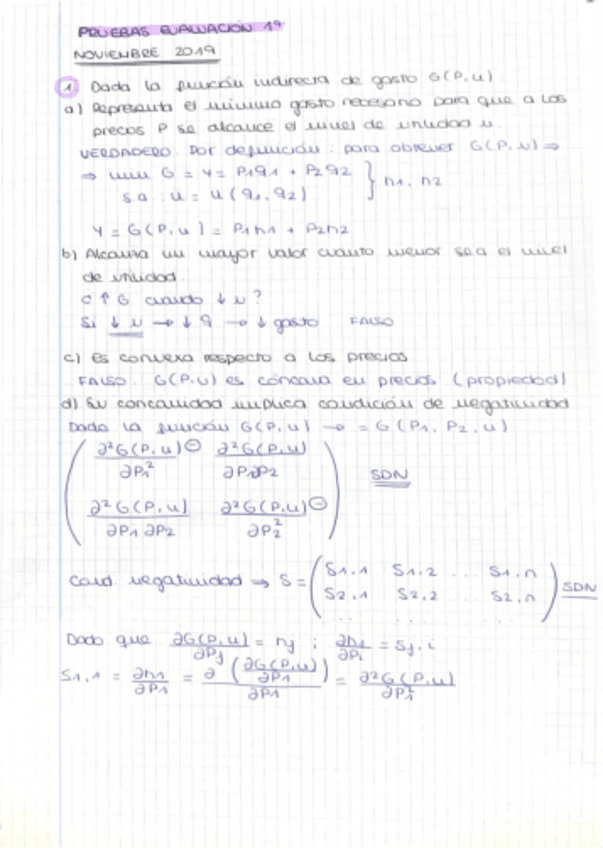 PRUEBAS EVALUACIÓN 1ª
NOVIEMBRE 2019
1 Dada la función indirecta de gasto G(P,u)
a) Representa el mínimo gasto necesario para que a los
precios P se alcance el nivel de utilidad u.
VERDADERO. Por definición: para obtener G(P,u) ⇒
⇒ min G = Y = P1q1 + P2q2
s.a: u = u(q1, q2) } h1, h2
Y = G(P,u) = P1h1 + P2h2
b) Alcanza un mayor valor cuanto menor sea el nivel
de utilidad.
¿↑G cuando ↓u?
Si ↓u → ↓q → ↓gasto FALSO
c) Es convexa respecto a los precios
FALSO. G(P,u) es cóncava en precios (propiedad)
d) Su concavidad implica condición de negatividad
Dada la función G(P,u) → = G(P1, P2, u)
∂²G(P,u)⊖ / ∂P1² ∂²G(P,u) / ∂P1∂P2
SDN
∂²G(P,u) / ∂P1∂P2 ∂²G(P,u)⊖ / ∂P2²
Cond. negatividad ⇒ S = ( S1,1 S1,2 ... S1,n
S2,1 S2,2 S2,n ) SDN
... ... ...
Dado que ∂G(P,u)/∂Pj = hj ; ∂hj/∂Pi = Sj,i
S1,1 = ∂h1/∂P1 = ∂(∂G(P,u)/∂P1)/∂P1 = ∂²G(P,u)/∂P1²